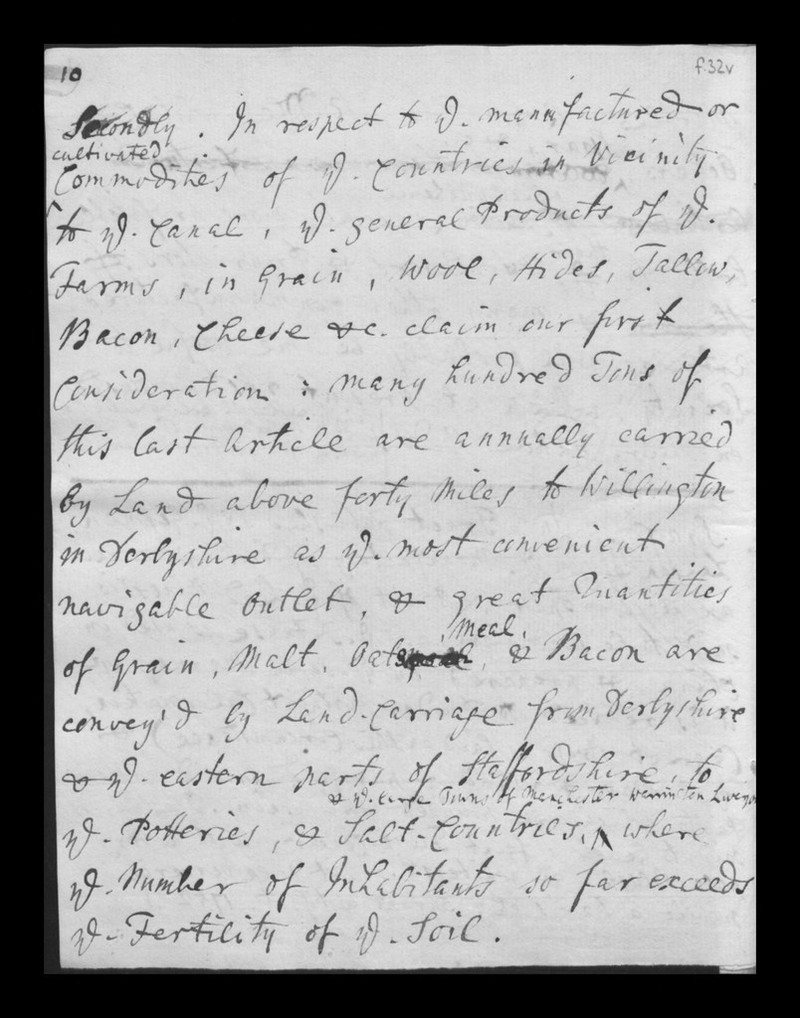 10
f.32v
Secondly. In respect to ye. manufactured or
cultivated
Commodities of ye. Countries in Vicinity
to ye. Canal, ye. general Products of ye.
Farms, in Grain, Wool, Hides, Tallow,
Bacon, Cheese &c. claim our first
Consideration: many hundred Tons of
this last Article are annually carried
by Land above forty Miles to Willington
in Derbyshire as ye. most convenient
navigable Outlet, & great Quantities
, Meal,
of Grain, Malt, Oats, & Bacon are
convey'd by Land-Carriage from Derbyshire
& ye. eastern parts of Staffordshire, to
& ye. large Towns of Manchester Warrington
ye. Potteries, & Salt-Countries, where
ye. Number of Inhabitants so far exceeds
ye. Fertility of ye. Soil.